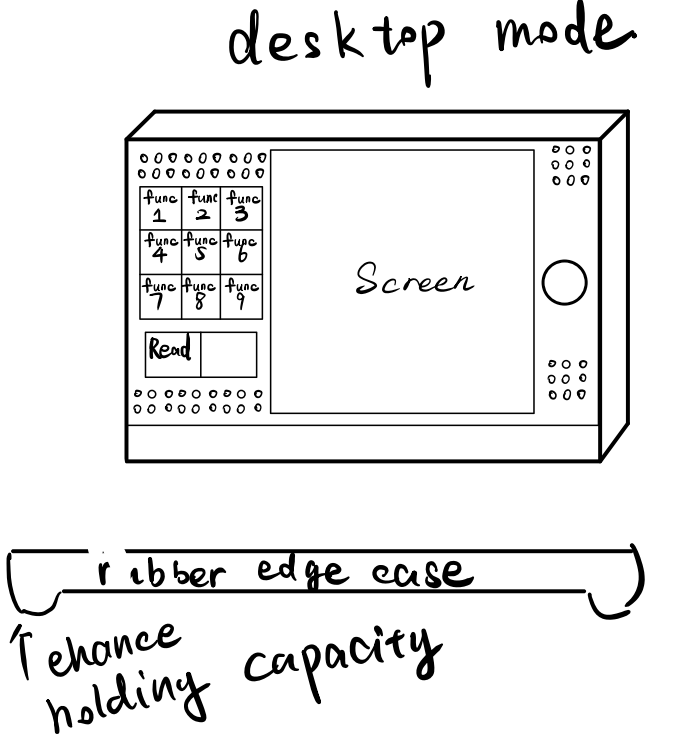 desktop mode
func 1 func 2 func 3
func 4 func 5 func 6
func 7 func 8 func 9
Screen
Read
rubber edge case
ehance
holding capacity